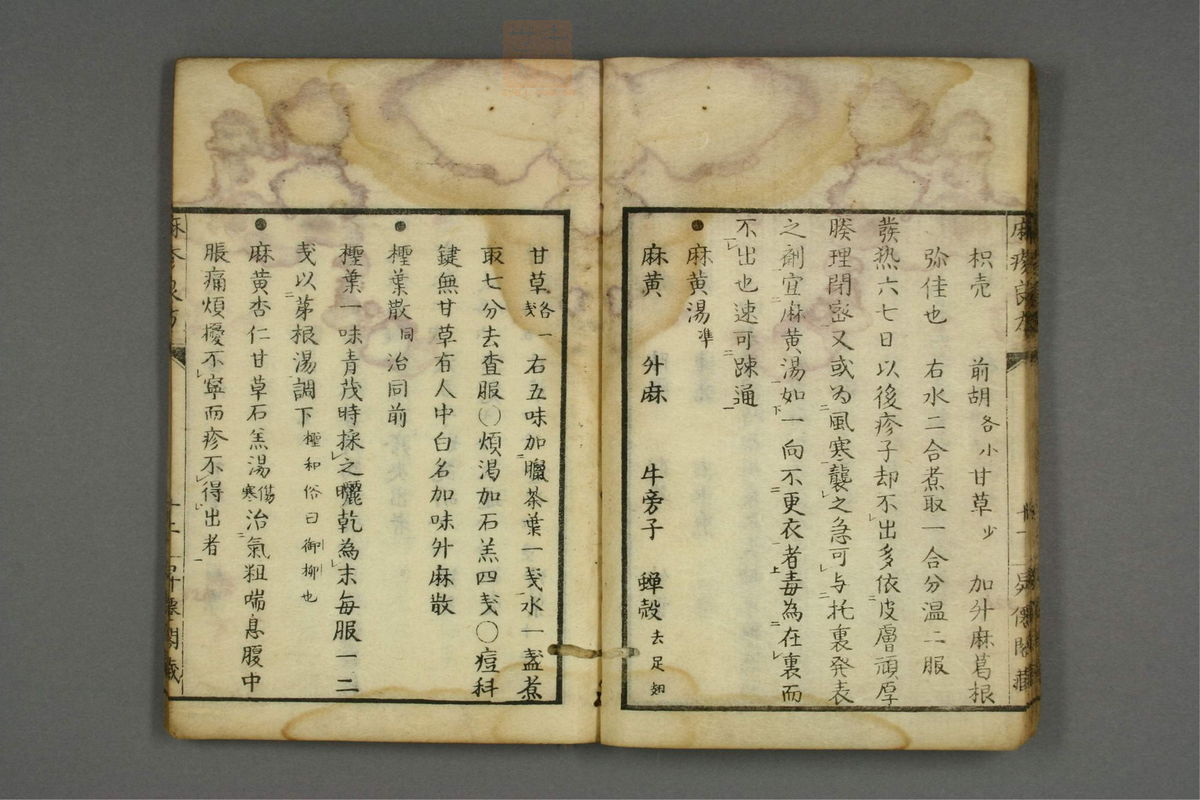 枳売 前胡各小甘草少 加升麻葛根
弥佳也 右水二合煮取一合分温二服
発熱六七日以後疹子却不出多依皮膚頑厚
腠理閉密又或为風寒襲之急可与托裏発表
之剤宜麻黄湯如一向不更衣者毒為在裏而
不出也速可踈通
●麻黄湯準
麻黄 升麻 牛旁子 蝉殻去足翅
甘草各一戔 右五味加臘茶葉一戔水一盞煮
取七分去査服〇煩渇加石羔四戔〇痘科
鍵無甘草有人中白名加味升麻散
●檉葉散同 治同前
檉葉一味青茂時採之曬乾為末毎服一二
戔以茅根湯調下檉和俗曰御柳也
●麻黄杏仁甘草石羔湯傷寒治氣粗喘息腹中
脹痛煩擾不寧而疹不得出者